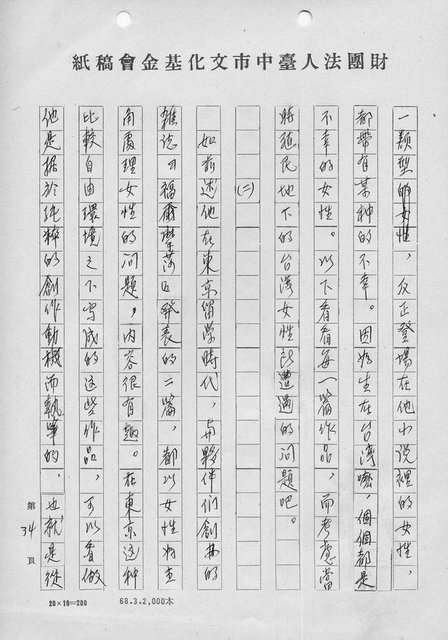 財團法人臺中市文化基金會稿紙
一類型的女性，反正登場在他小説裡的女性，
都帶有某种的不幸。因為生在台湾嘛，個個都是
不幸的女性。以下看看每一篇作品，而考慮當
時殖民地下的台湾女性所遭遇的问題吧。
(二)
如前述他在東京留学時代，与夥伴们創刊的
雜誌『福爾摩莎』発表的二篇，都以女性為主
角處理女性的问題，内容很有趣。在東京這种
比較自由環境之下写成的這些作品，可以看做
他是據於純粹的創作動機而執筆的，也就是從
第34頁
20×10=200
68.3.2,000本